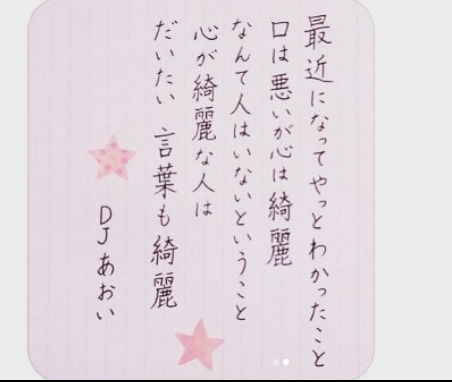 最近になってやっとわかったこと
口は悪いが心は綺麗
なんて人はいないということ
心が綺麗な人は
だいたい 言葉も綺麗
DJあおい